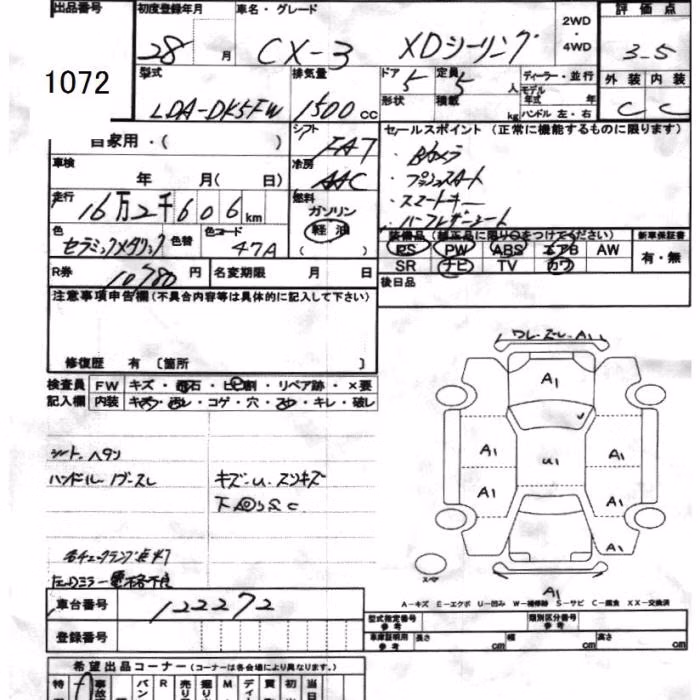 出品番号 初度登録年月 車名・グレード 2WD・4WD 評価点
1072 28 月 CX-3 XDツーリング 3-5
型式 排気量 ドア 5 定員 5 人 ディーラー・並行 外装 内装
LDA-DK5FW 1500 cc 形状 積載 kg モデル年式 年 ハンドル 左・右 C C
自家用・( シフト FAT セールスポイント (正常に機能するものに限ります)
車検 年 月( 日) 冷房 AAC ・Bカメラ
・プッシュスタート
走行 16万2千606km 燃料 ガソリン 軽油 ( ) ・スマートキー
・ハーフレザーシート
色 セラミックメタリック 色替 色コード 47A 装備品 (純正品に限り○をつけてください) 新車保証書
PS PW ABS エアB AW 有・無
R券 10780 円 名変期限 月 日 SR ナビ TV カワ
後日品
注意事項申告欄(不具合内容等は具体的に記入して下さい)
修復歴 有 〔箇所 〕
検査員 FW キズ・飛石・ヒビ割・リペア跡・×要
記入欄 内装 キズ・汚レ・コゲ・穴・キレ・破レ
シートヘタリ
ハンドル・ノブスレ キズ・U・スリキズ
下回りS C
ワレ・ズレ・A1
A1
A1 U1 A1
A1 A1
A1
スペア
A1
A-キズ E-エクボ U-凹み W-補修跡 S-サビ C-腐食 XX-交換済
車台番号 122272
型式指定番号 参考 類別区分番号 参考
登録番号 車庫証明用 参考 長さ cm 幅 cm 高さ cm
希望出品コーナー (コーナーは各会場により異なります。)